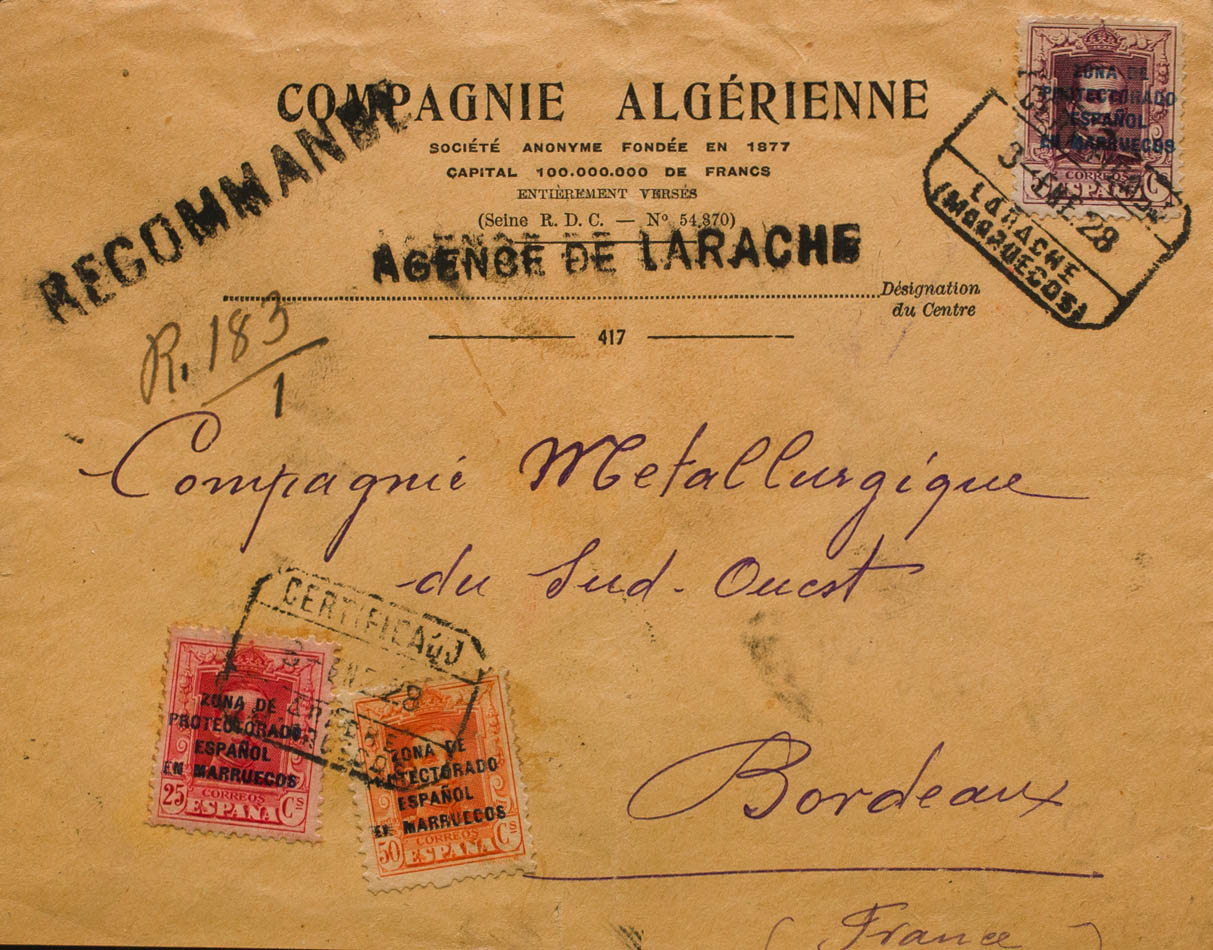 COMPAGNIE ALGÉRIENNE
SOCIÉTÉ ANONYME FONDÉE EN 1877
CAPITAL 100.000.000 DE FRANCS
ENTIÈREMENT VERSÉS
(Seine R. D. C. — Nº 54,370)
RECOMMANDÉ
AGENCE DE LARACHE
Désignation
du Centre
417
R. 183
1
ZONA DE
PROTECTORADO
ESPAÑOL
EN MARRUECOS
CORREOS
ESPAÑA
3 ENE. 28
LARACHE
(MARRUECOS)
Compagnie Metallurgique
du Sud-Ouest
Bordeaux
(France)
CERTIFICADO
3 ENE 28
ZONA DE
PROTECTORADO
ESPAÑOL
EN MARRUECOS
CORREOS
25 ESPAÑA Cs
ZONA DE
PROTECTORADO
ESPAÑOL
EN MARRUECOS
CORREOS
50 ESPAÑA Cs